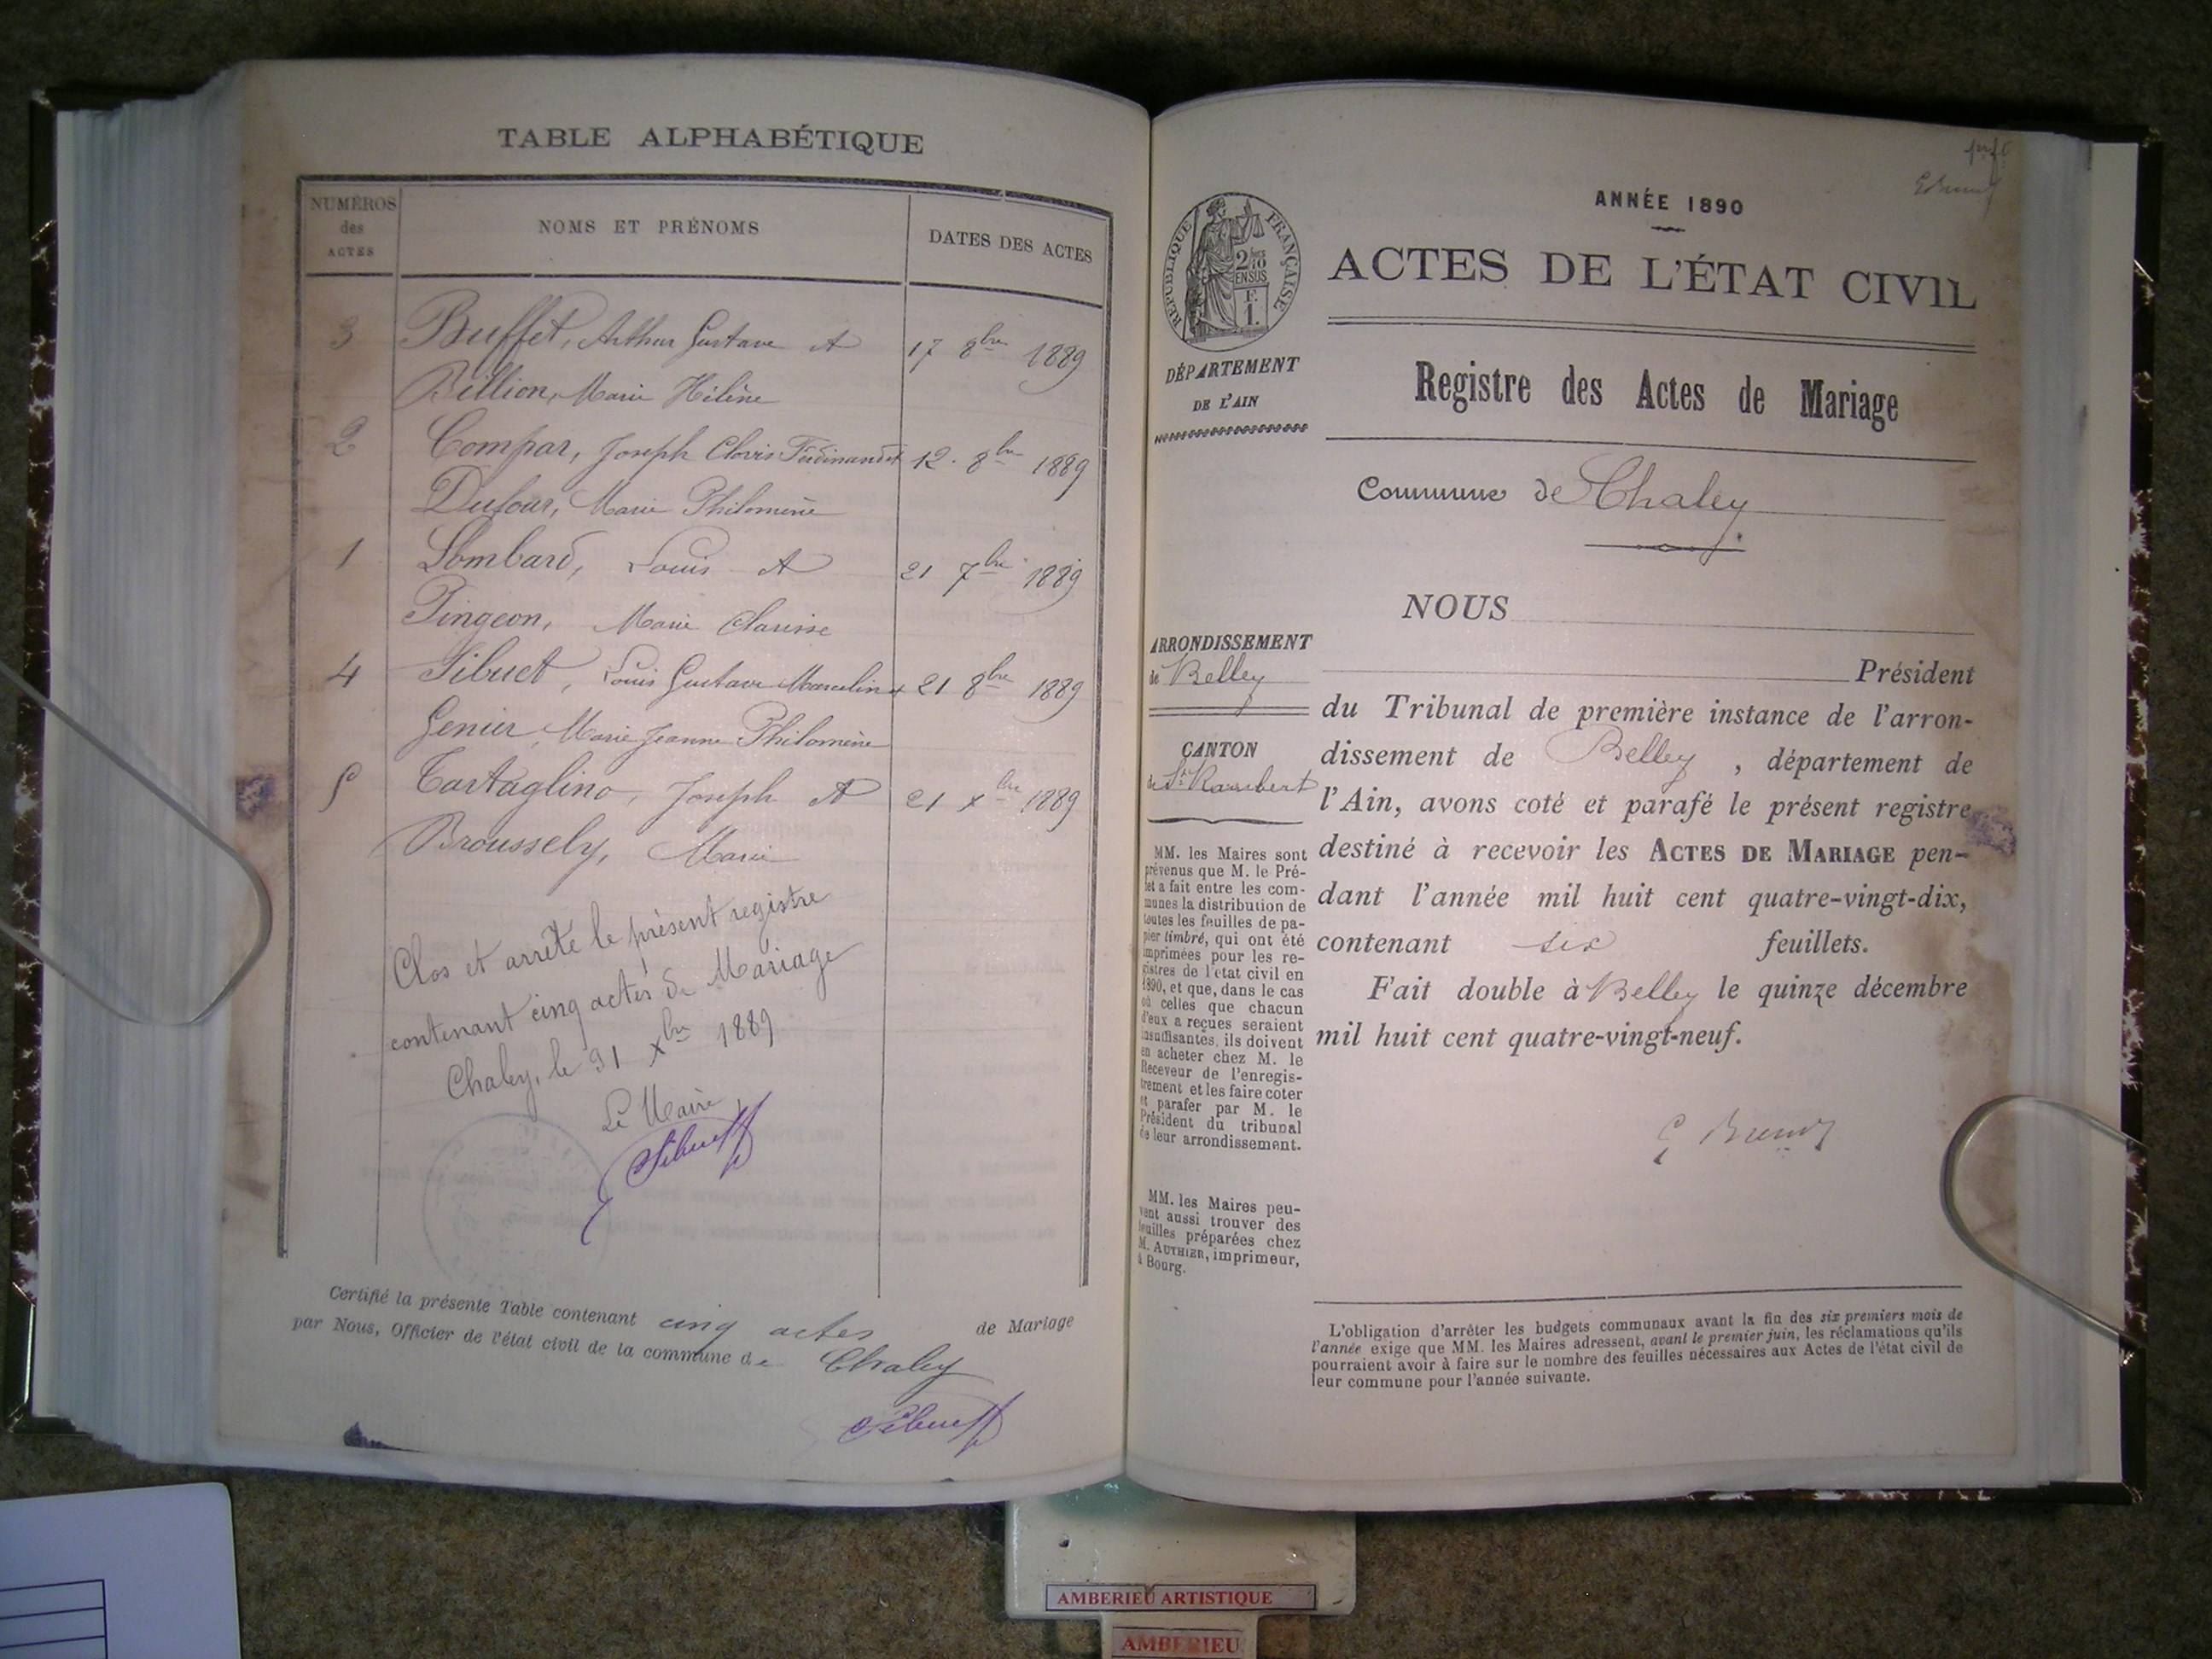 TABLE ALPHABÉTIQUE
NUMÉROS des ACTES
NOMS ET PRÉNOMS
DATES DES ACTES
3 Buffet, Arthur Gustave et 17 8bre 1889
Billion, Marie Hélène
2 Compar, Joseph Clovis Ferdinand et 12 8bre 1889
Dufour, Marie Philomène
1 Lombard, Louis et 21 7bre 1889
Pingeon, Marie Clarisse
4 Sibuet, Louis Gustave Marcelin et 21 8bre 1889
Genier, Marie Jeanne Philomène
5 Tartaglino, Joseph et 21 xbre 1889
Broussely, Marie
Clos et arrêté le présent registre
contenant cinq actes de Mariage
Chaley, le 31 xbre 1889
Le Maire,
Sibuet
Certifié la présente Table contenant cinq actes de Mariage
par Nous, Officier de l'état civil de la commune de Chaley
Sibuet
ANNÉE 1890
ACTES DE L'ÉTAT CIVIL
RÉPUBLIQUE FRANÇAISE
2/10
EN SUS
F.
1.
DÉPARTEMENT
DE L'AIN
Registre des Actes de Mariage
Commune de Chaley
NOUS
ARRONDISSEMENT
de Belley
CANTON
de St Rambert
Président
du Tribunal de première instance de l'arron-
dissement de Belley, département de
l'Ain, avons coté et parafé le présent registre
destiné à recevoir les ACTES DE MARIAGE pen-
dant l'année mil huit cent quatre-vingt-dix,
contenant six feuillets.
Fait double à Belley le quinze décembre
mil huit cent quatre-vingt-neuf.
MM. les Maires sont
prévenus que M. le Pré-
fet a fait entre les com-
munes la distribution de
toutes les feuilles de pa-
pier timbré, qui ont été
imprimées pour les re-
gistres de l'état civil en
1890, et que, dans le cas
où celles que chacun
d'eux a reçues seraient
insuffisantes, ils doivent
en acheter chez M. le
Receveur de l'enregis-
trement et les faire coter
et parafer par M. le
Président du tribunal
de leur arrondissement.
MM. les Maires peu-
vent aussi trouver des
feuilles préparées chez
M. AUTHIER, imprimeur,
à Bourg.
L'obligation d'arrêter les budgets communaux avant la fin des six premiers mois de
l'année exige que MM. les Maires adressent, avant le premier juin, les réclamations qu'ils
pourraient avoir à faire sur le nombre des feuilles nécessaires aux Actes de l'état civil de
leur commune pour l'année suivante.
AMBERIEU ARTISTIQUE
AMBERIEU